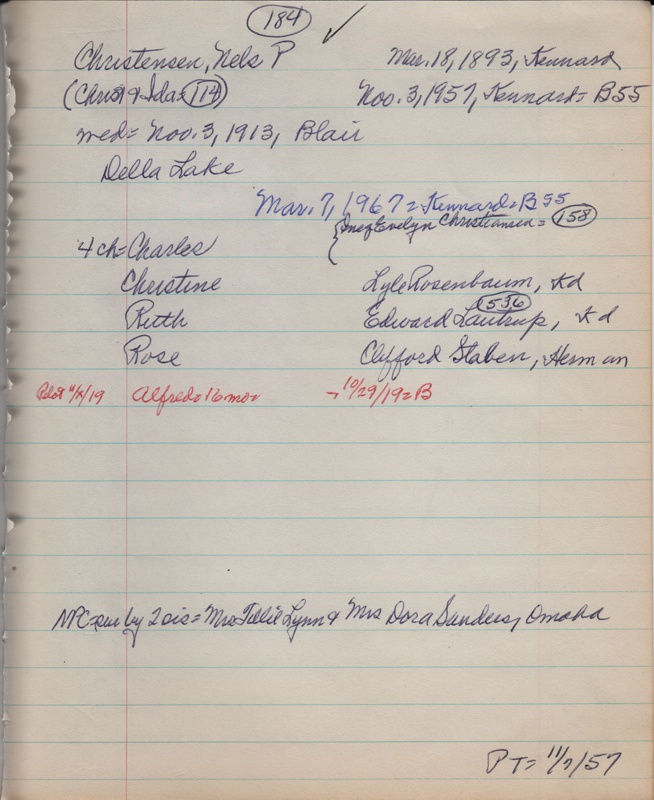 184 ✓
Christensen, Nels P Mar. 18, 1893, Kennard
(Christ & Ida = 114) Nov. 3, 1957, Kennard = B55
wed = Nov. 3, 1913, Blair
Della Lake
Mar. 7, 1967 = Kennard = B55
{Inez Evelyn Christiansen = 158
4 ch = Charles
Christine Lyle Rosenbaum, Kd
Ruth Edward Lautrup, Kd
536
Rose Clifford Staben, Herman
Pilot 11/ /19 Alfred = 16 mo = 10/29/19 = B
NPC = sur by 2 sis = Mrs Tillie Lynn & Mrs Dora Sanders, Omaha
PT = 11/7/57